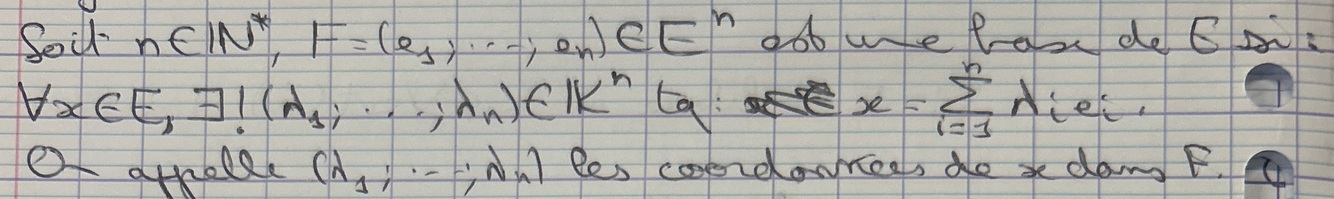 Soit n ∈ ℕ*, F = (e₁; ...; eₙ) ∈ Eⁿ est une base de E si :
∀x ∈ E, ∃! (λ₁; ...; λₙ) ∈ 𝕂ⁿ tq : x = ∑ᵢ₌₁ⁿ λᵢeᵢ.
On appelle (λ₁; ...; λₙ) les coordonnées de x dans F.